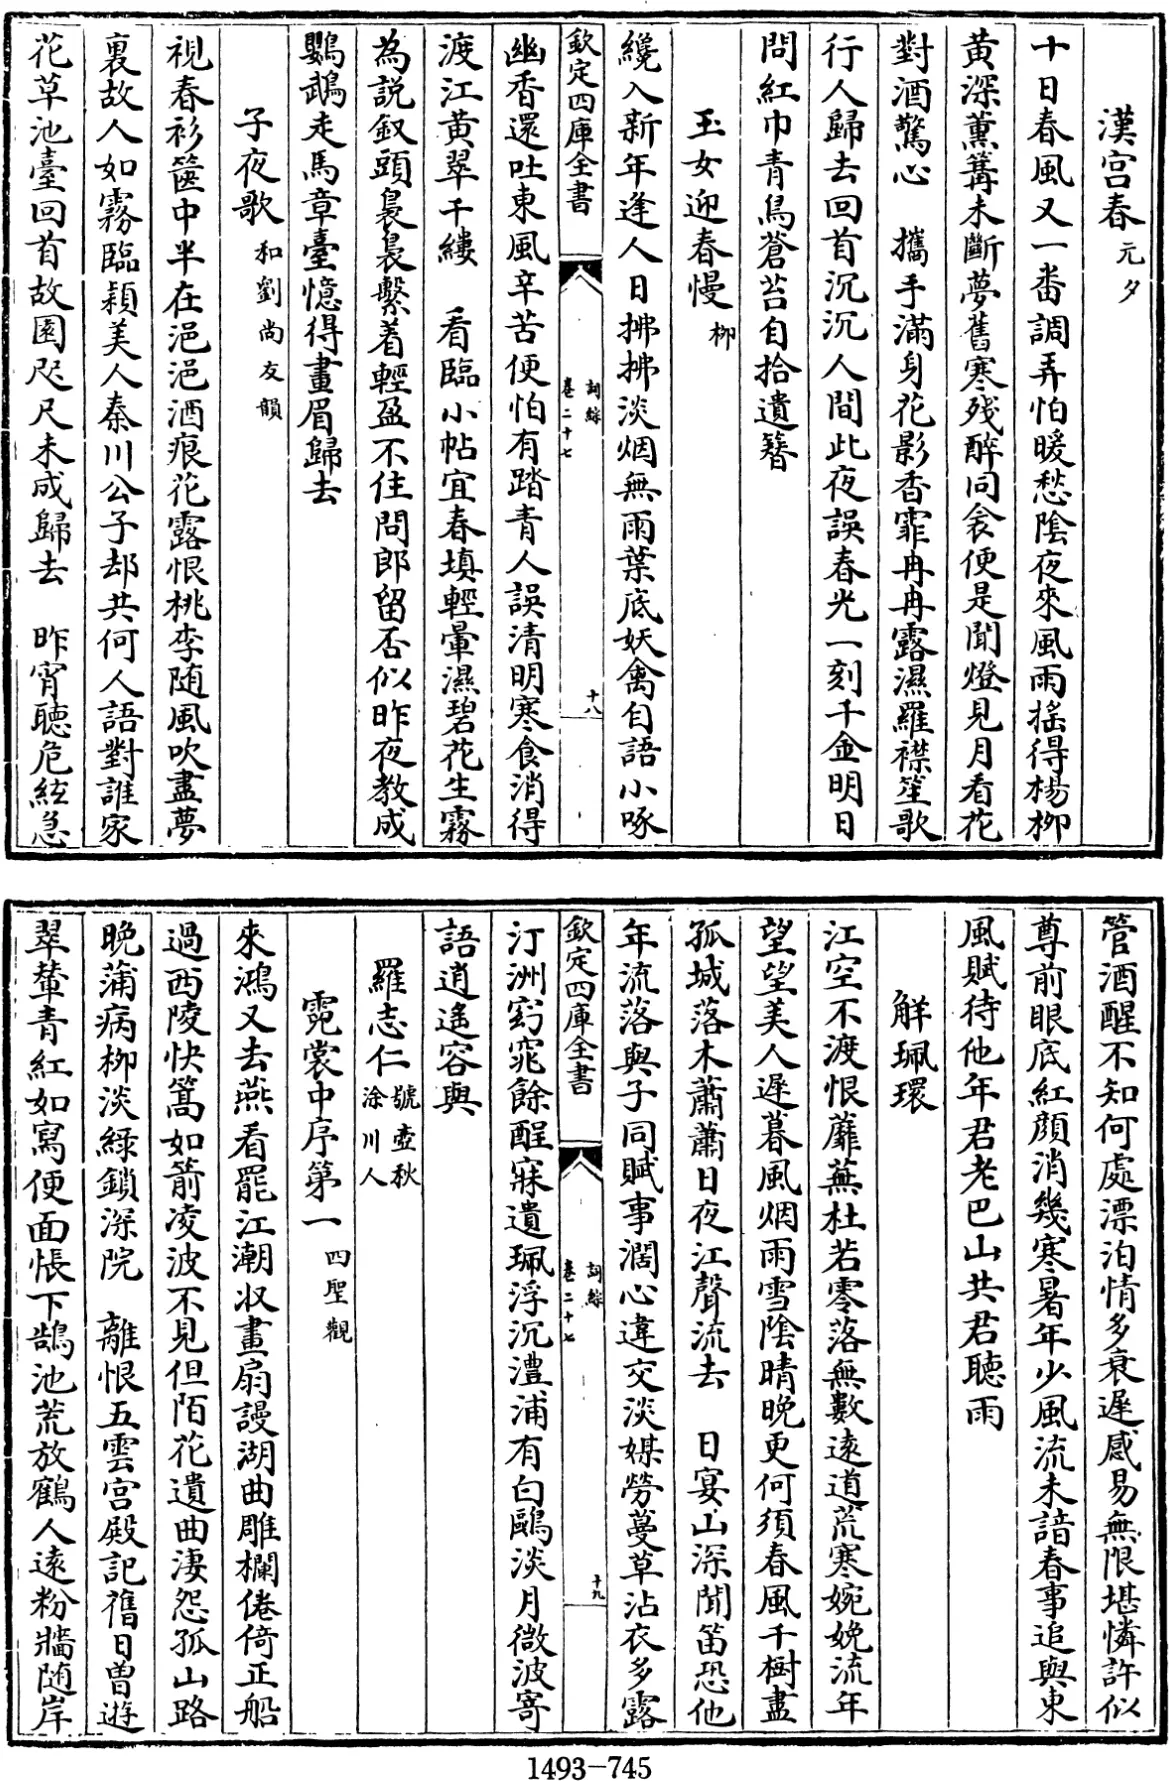 漢宫春元夕
十日春風又一畨調弄怕暖愁隂夜來風雨揺得楊柳
黄深薰篝未斷夢舊寒殘醉同衾便是聞燈見月看花
對酒驚心　攜手滿身花影香霏冉冉露濕羅襟笙歌
行人歸去回首沉沉人間此夜誤春光一刻千金明日
問紅巾青鳥蒼苔自拾遺簮
玉女迎春慢柳
纔入新年逢人日拂拂淡烟無雨葉底妖禽自語小啄
欽定四庫全書
詞綜
卷二十七
十八
幽香還吐東風辛苦便怕有踏青人誤清明寒食消得
渡江黄翠千縷　看臨小帖宜春填輕暈濕碧花生霧
為説釵頭裊裊繫着輕盈不住問郎留否似昨夜教成
鸚鵡走馬章臺憶得畫眉歸去
子夜歌和劉尚友韻
視春衫篋中半在浥浥酒痕花露恨桃李随風吹盡夢
裏故人如霧臨頴美人秦川公子却共何人語對誰家
花草池臺回首故園咫尺未成歸去　昨宵聽危絃急
管酒醒不知何處漂泊情多衰遲感易無限堪憐許似
尊前眼底紅顔消幾寒暑年少風流未諳春事追與東
風賦待他年君老巴山共君聽雨
解珮環
江空不渡恨蘼蕪杜若零落無數逺道荒寒婉娩流年
望望美人遲暮風烟雨雪隂晴晩更何須春風千樹盡
孤城落木蕭蕭日夜江聲流去　日宴山深聞笛恐他
年流落與子同賦事濶心違交淡媒勞蔓草沾衣多露
欽定四庫全書
詞綜
卷二十七
十九
汀洲窈窕餘酲寐遺珮浮沉澧浦有白鷗淡月微波寄
語逍遥容與
羅志仁號壺秋
涂川人
霓裳中序第一四聖觀
來鴻又去燕看罷江潮収畫扇謾湖曲雕欄倦倚正船
過西陵快篙如箭凌波不見但陌花遺曲淒怨孤山路
晩蒲病柳淡緑鎖深院　離恨五雲宫殿記舊日曽遊
翠輦青紅如寫便面悵下鵠池荒放鶴人逺粉牆随岸
1493-745